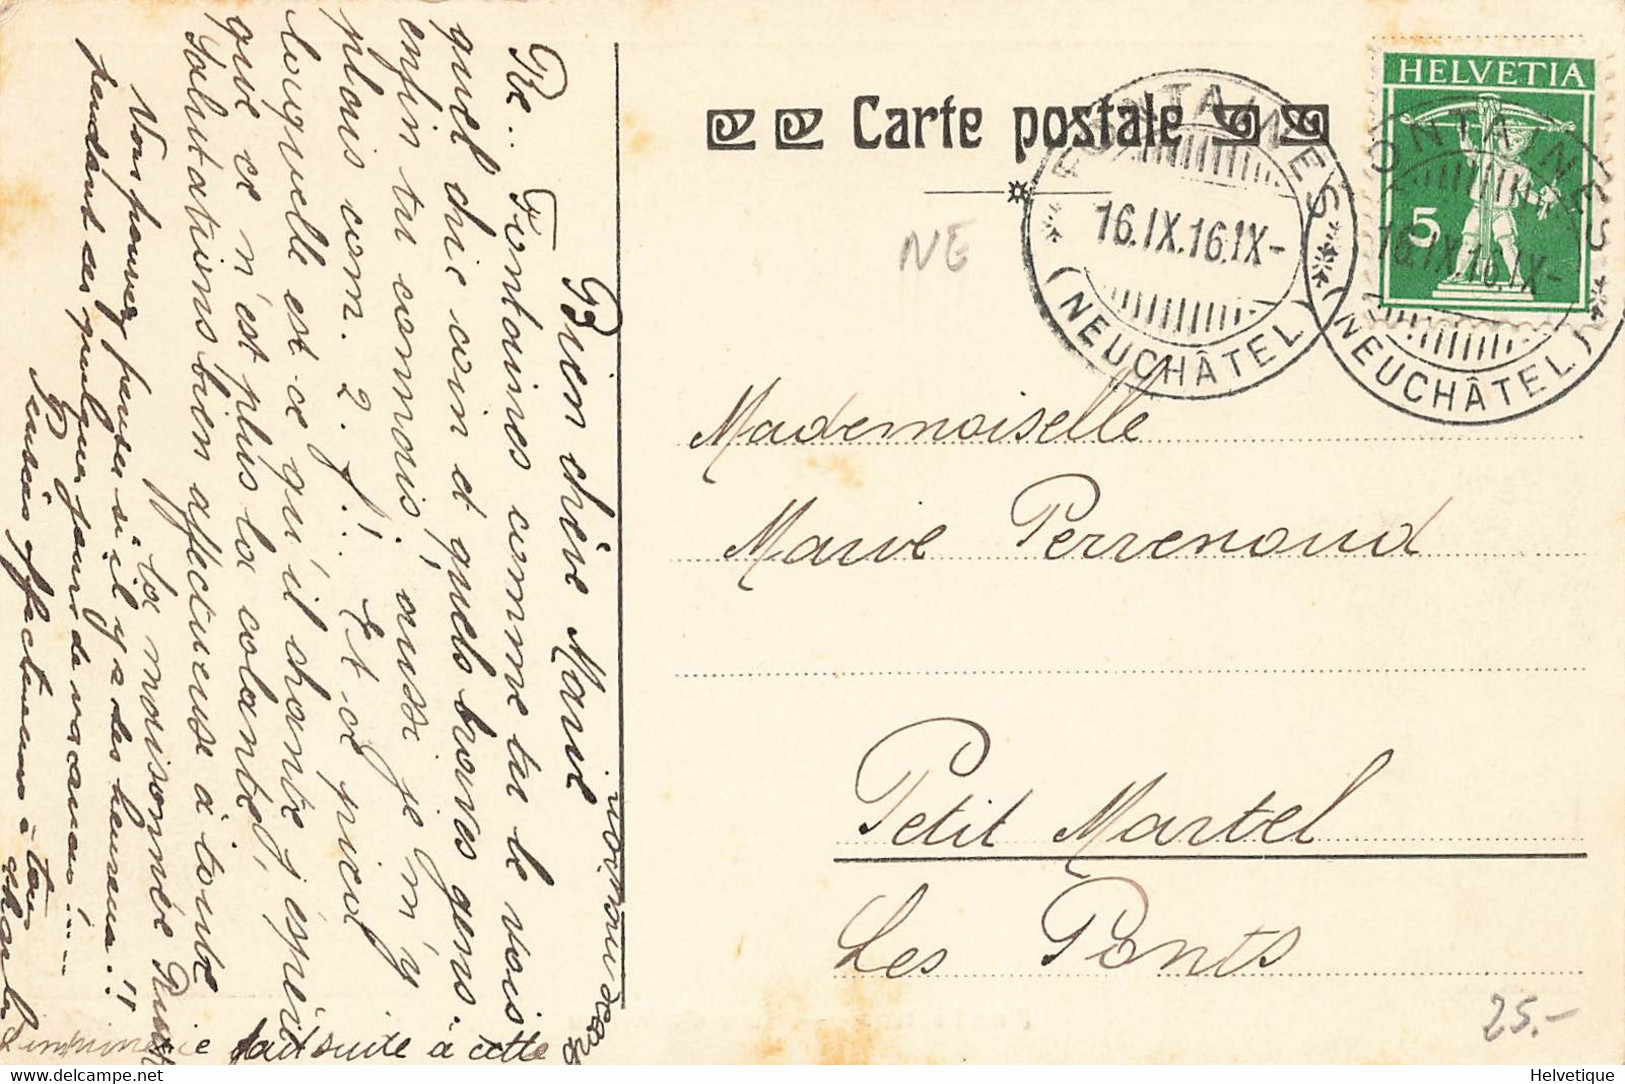 Carte postale
HELVETIA
5
FONTAINES
16.IX.16.IX-
(NEUCHÂTEL)
FONTAINES
16.IX.16.IX-
(NEUCHÂTEL)
NE
Mademoiselle
Marie Perrenoud
Petit Martel
Les Ponts
25.-
Bien chère Marie
De.. Fontaines comme tu le vois
quel chic coin et quels braves gens.
enfin tu connais! aussi je m'y
plais com. 2. f!.. Et ce
laquelle est ce qu'il chante j'espère
que ce n'est plus la
Salutations bien affectueuse à toute
la maisonnée
Vous pouvez penser si il y a des heureux!!
pendant ces quelques jours de vacances!....
Pensées affectueuses à tous
fait suite à cette
Helvetique